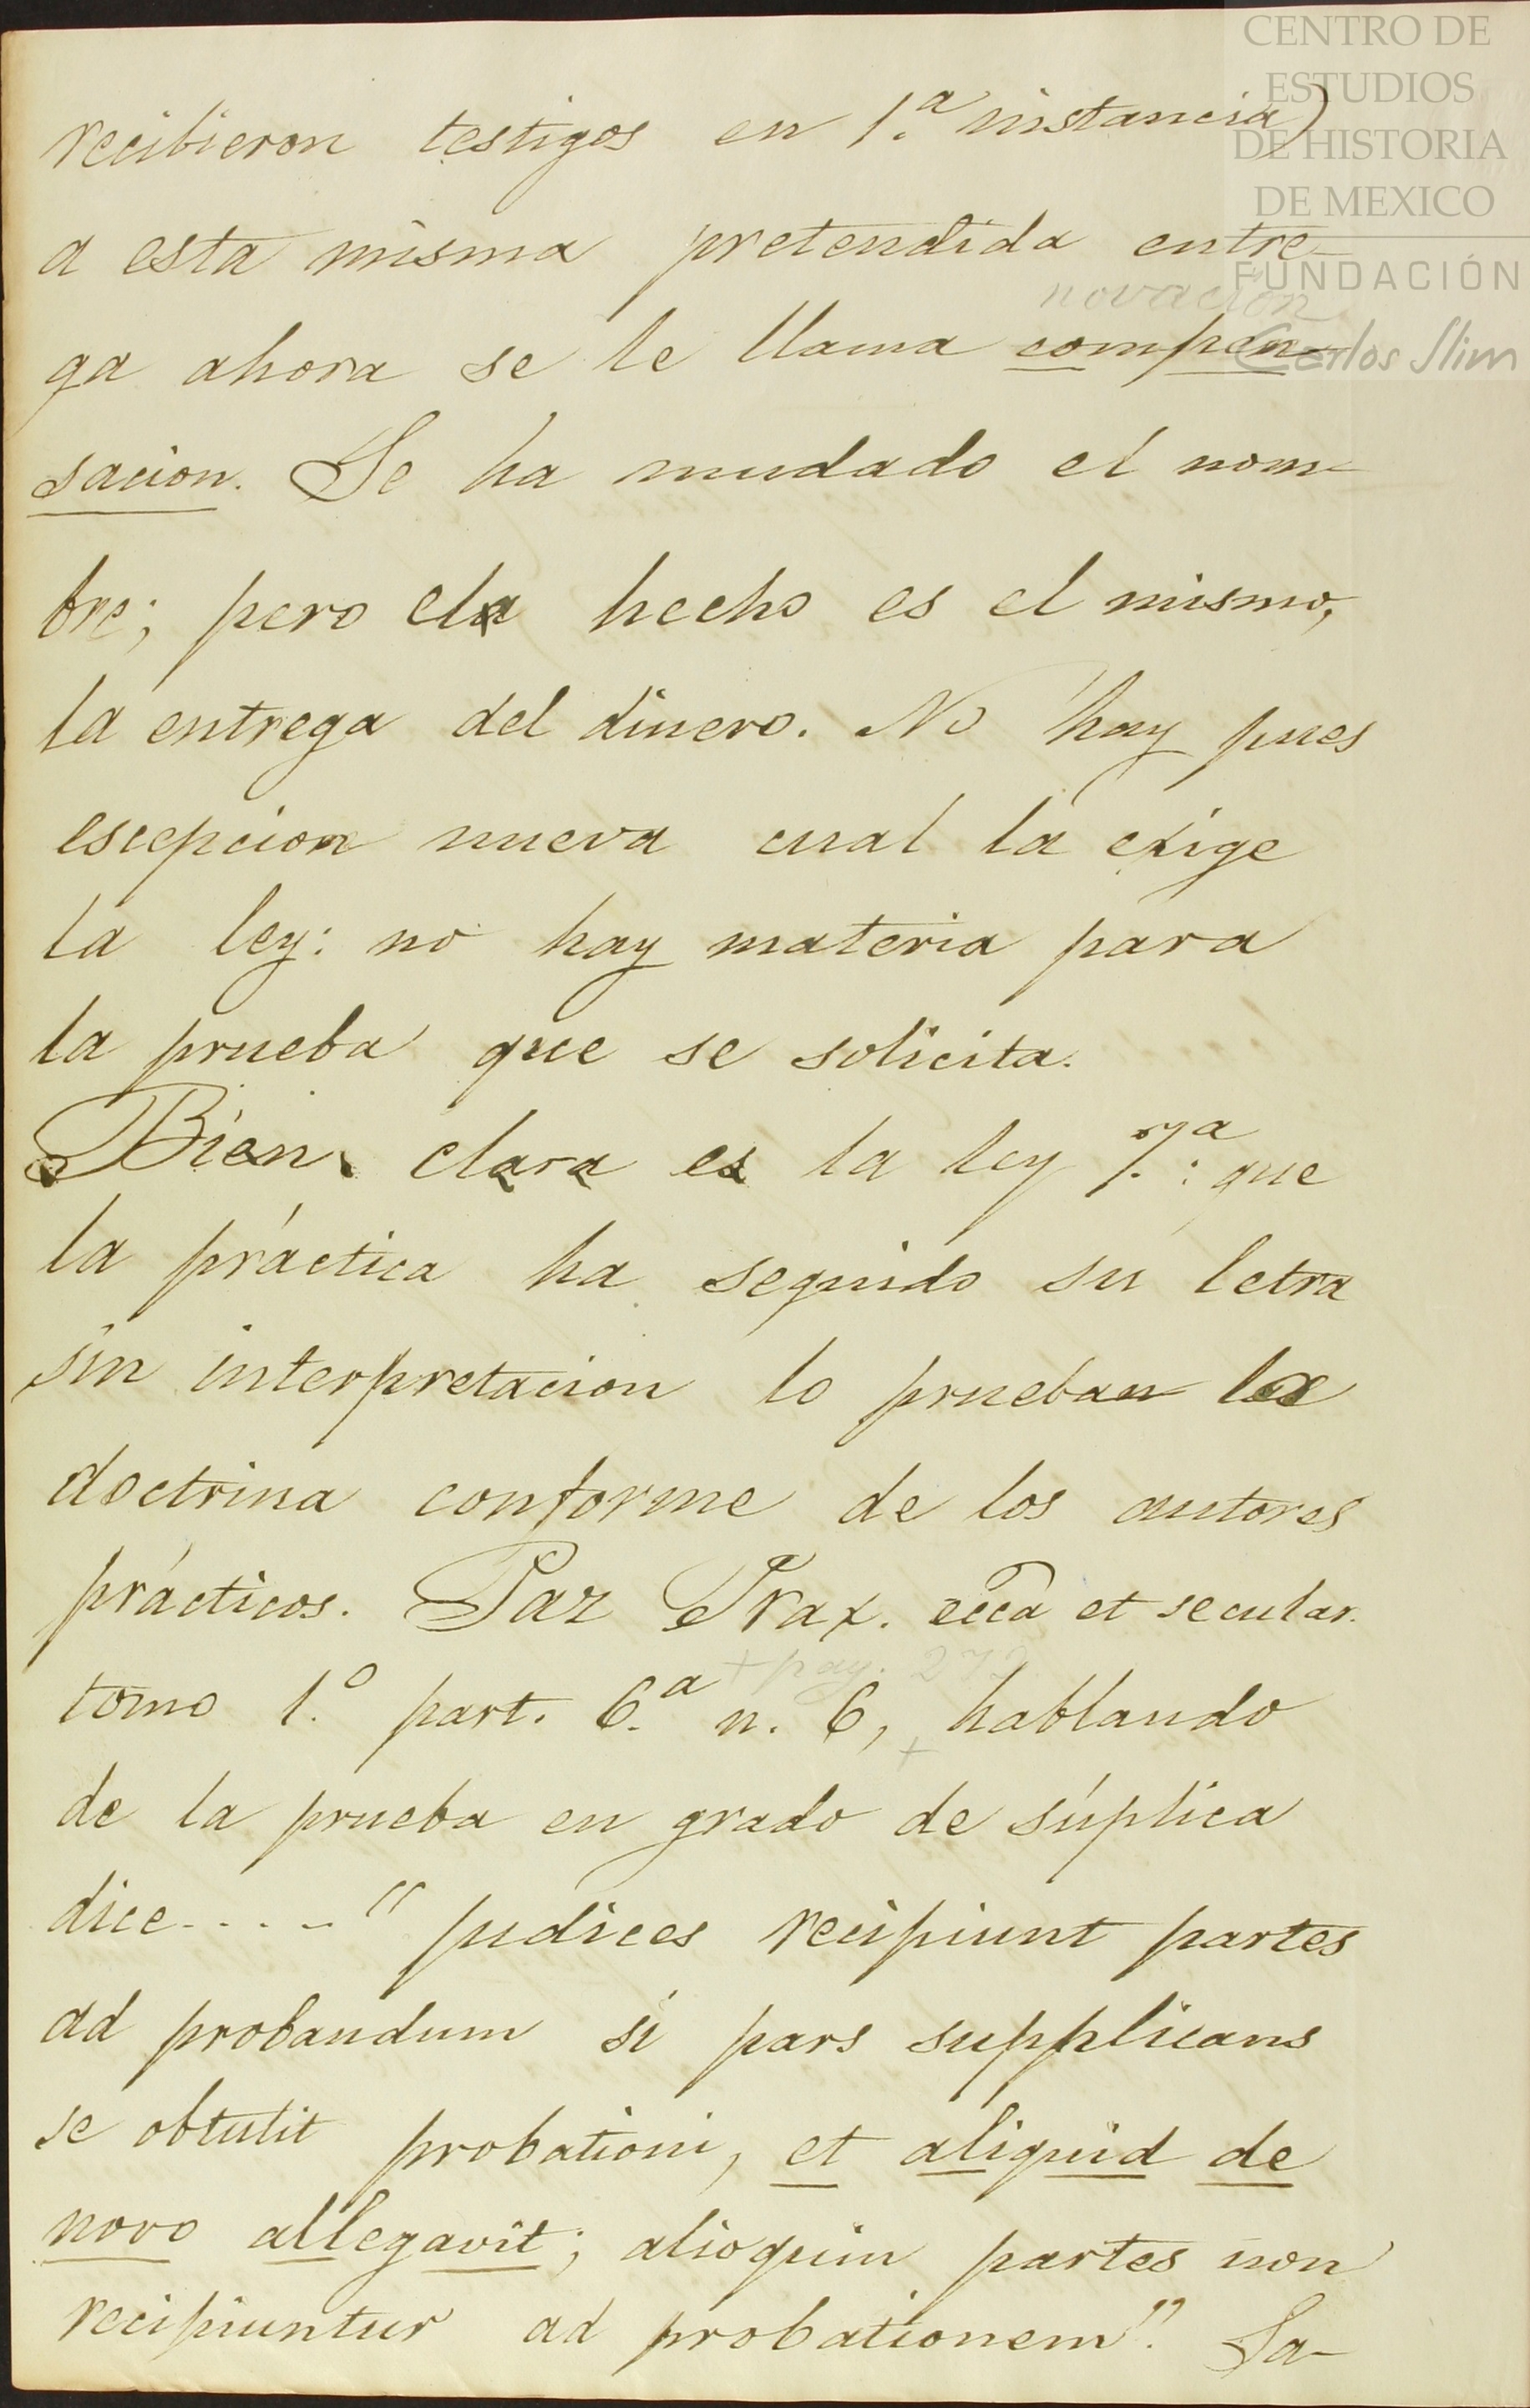 CENTRO DE
ESTUDIOS
DE HISTORIA
DE MEXICO
FUNDACIÓN
Carlos Slim
recibieron testigos en 1.ª instancia)
a esta misma pretendida entre-
novacion
ga ahora se le llama compen-
sacion. Se ha mudado el nom-
bre; pero el hecho es el mismo,
la entrega del dinero. No hay pues
escepcion nueva cual la exige
la ley: no hay materia para
la prueba que se solicita.
Bien clara es la ley 7.ª: que
la práctica ha seguido su letra
sin interpretacion lo prueban la
doctrina conforme de los autores
prácticos. Paz Prax. ecca et secular.
+ pag. 272
tomo 1.º part. 6.ª n. 6, + hablando
de la prueba en grado de súplica
dice----" judices recipiunt partes
ad probandum si pars supplicans
se obtulit probationi, et aliquid de
novo allegavit; alioquin partes non
recipiuntur ad probationem". Sa-